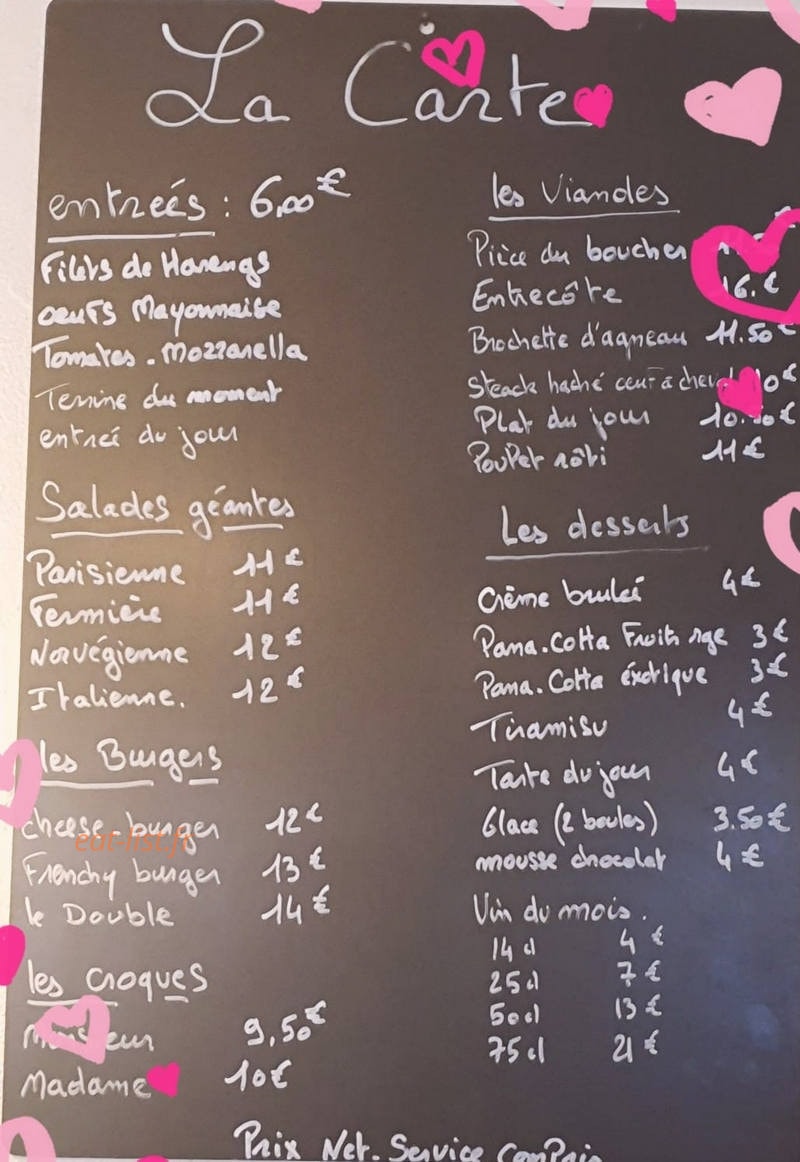 La Carte
entreés : 6,00€
Filets de Harengs
oeufs Mayonnaise
Tomates . Mozzarella
Terrine du moment
entreé du jour
Salades géantes
Parisienne 11€
Fermière 11€
Norvégienne 12€
Italienne. 12€
les Burgers
cheese-burger 12€
eat-list.fr
Frenchy burger 13€
le Double 14€
les croques
9,50€
Madame 10€
les Viandes
Pièce du boucher
Entrecôte 16.€
Brochette d'agneau 11.50€
Steack haché oeuf à cheval
Plat du jour
Poulet rôti 11€
Les desserts
Crème bruleé 4€
Pana.Cotta Fruits rge 3€
Pana.Cotta éxotique 3€
Tiramisu 4€
Tarte du jour 4€
Glace (2 boules) 3.50€
mousse chocolat 4€
Vin du mois.
14cl 4€
25cl 7€
50cl 13€
75cl 21€
Prix Net. Service Compris